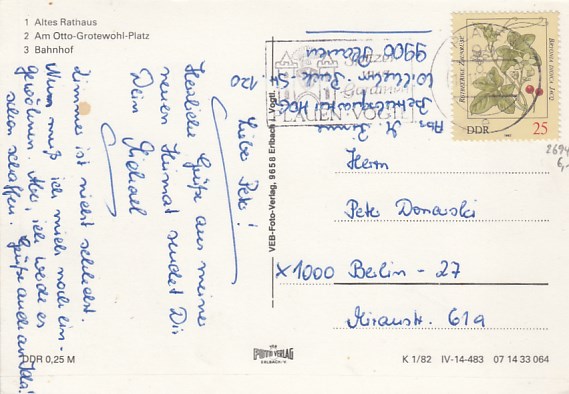 1 Altes Rathaus
2 Am Otto-Grotewohl-Platz
3 Bahnhof
Liebe Peter!
Herzliche Grüße aus meiner
neuen Heimat sendet Dir
Dein Michael
Zimmer ist nicht schlecht.
Nun muß ich mich noch ein-
gewöhnen. Aber, ich werde es
schon schaffen. Grüße auch an
Abs.
9900 Plauen
120
Spitzen
und
Gardinen
PLAUEN · VOGTL
DDR
25
1982
Herrn
Peter Donaski
X1000 Berlin - 27
Miraustr. 61a
2694
6,-
VEB-Foto-Verlag, 9658 Erlbach i. Vogtl.
DDR 0,25 M
FOTO VERLAG
ERLBACH/V.
K 1/82 IV-14-483 07 14 33 064